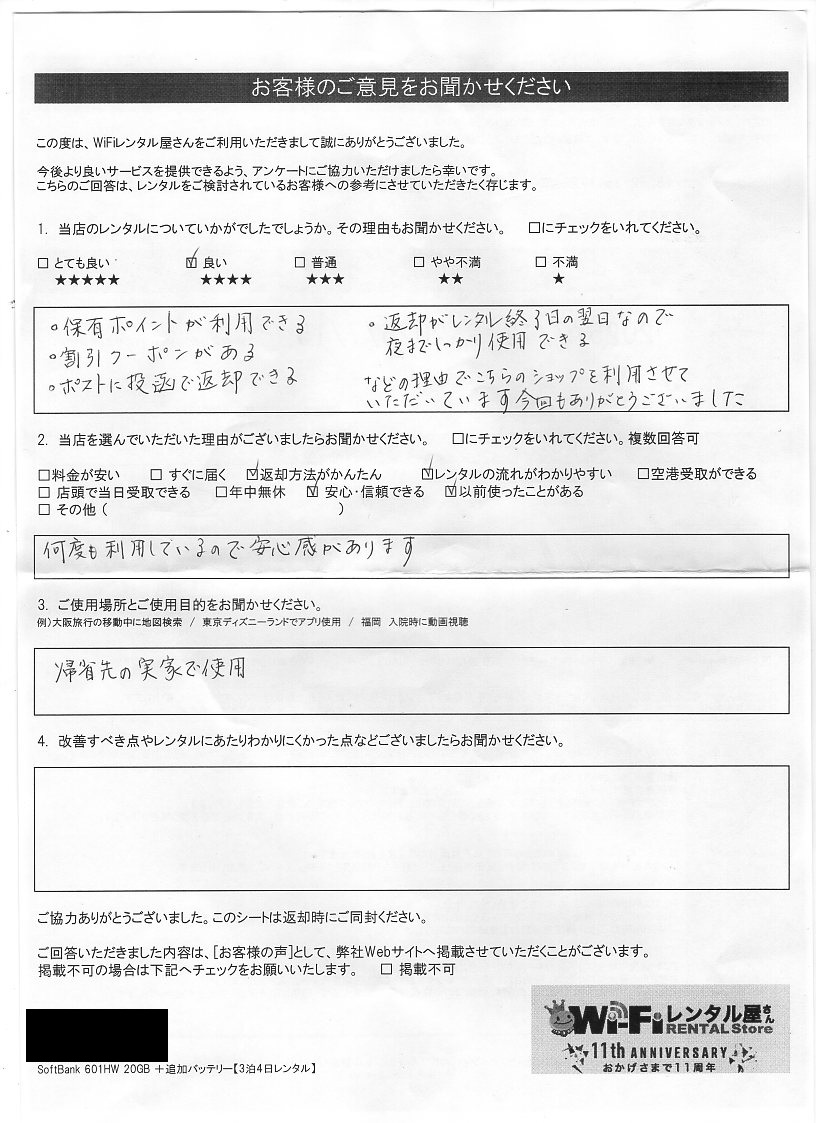 お客様のご意見をお聞かせください
この度は、WiFiレンタル屋さんをご利用いただきまして誠にありがとうございました。
今後より良いサービスを提供できるよう、アンケートにご協力いただけましたら幸いです。
こちらのご回答は、レンタルをご検討されているお客様への参考にさせていただきたく存じます。
1. 当店のレンタルについていかがでしたでしょうか。その理由もお聞かせください。 □にチェックをいれてください。
□ とても良い ☑ 良い □ 普通 □ やや不満 □ 不満
★★★★★ ★★★★ ★★★ ★★ ★
。保有ポイントが利用できる
。割引クーポンがある
。ポストに投函で返却できる
。返却がレンタル終了日の翌日なので
夜までしっかり使用できる
などの理由でこちらのショップを利用させて
いただいています今回もありがとうございました
2. 当店を選んでいただいた理由がございましたらお聞かせください。 □にチェックをいれてください。複数回答可
□料金が安い □ すぐに届く ☑返却方法がかんたん ☑レンタルの流れがわかりやすい □空港受取ができる
□ 店頭で当日受取できる □年中無休 ☑ 安心・信頼できる ☑以前使ったことがある
□ その他 ( )
何度も利用しているので安心感があります
3. ご使用場所とご使用目的をお聞かせください。
例)大阪旅行の移動中に地図検索 / 東京ディズニーランドでアプリ使用 / 福岡 入院時に動画視聴
帰省先の実家で使用
4. 改善すべき点やレンタルにあたりわかりにくかった点などございましたらお聞かせください。
ご協力ありがとうございました。このシートは返却時にご同封ください。
ご回答いただきました内容は、[お客様の声]として、弊社Webサイトへ掲載させていただくことがございます。
掲載不可の場合は下記へチェックをお願いいたします。 □ 掲載不可
Wi-Fiレンタル屋さん
RENTAL Store
11th ANNIVERSARY
おかげさまで11周年
SoftBank 601HW 20GB +追加バッテリー【3泊4日レンタル】